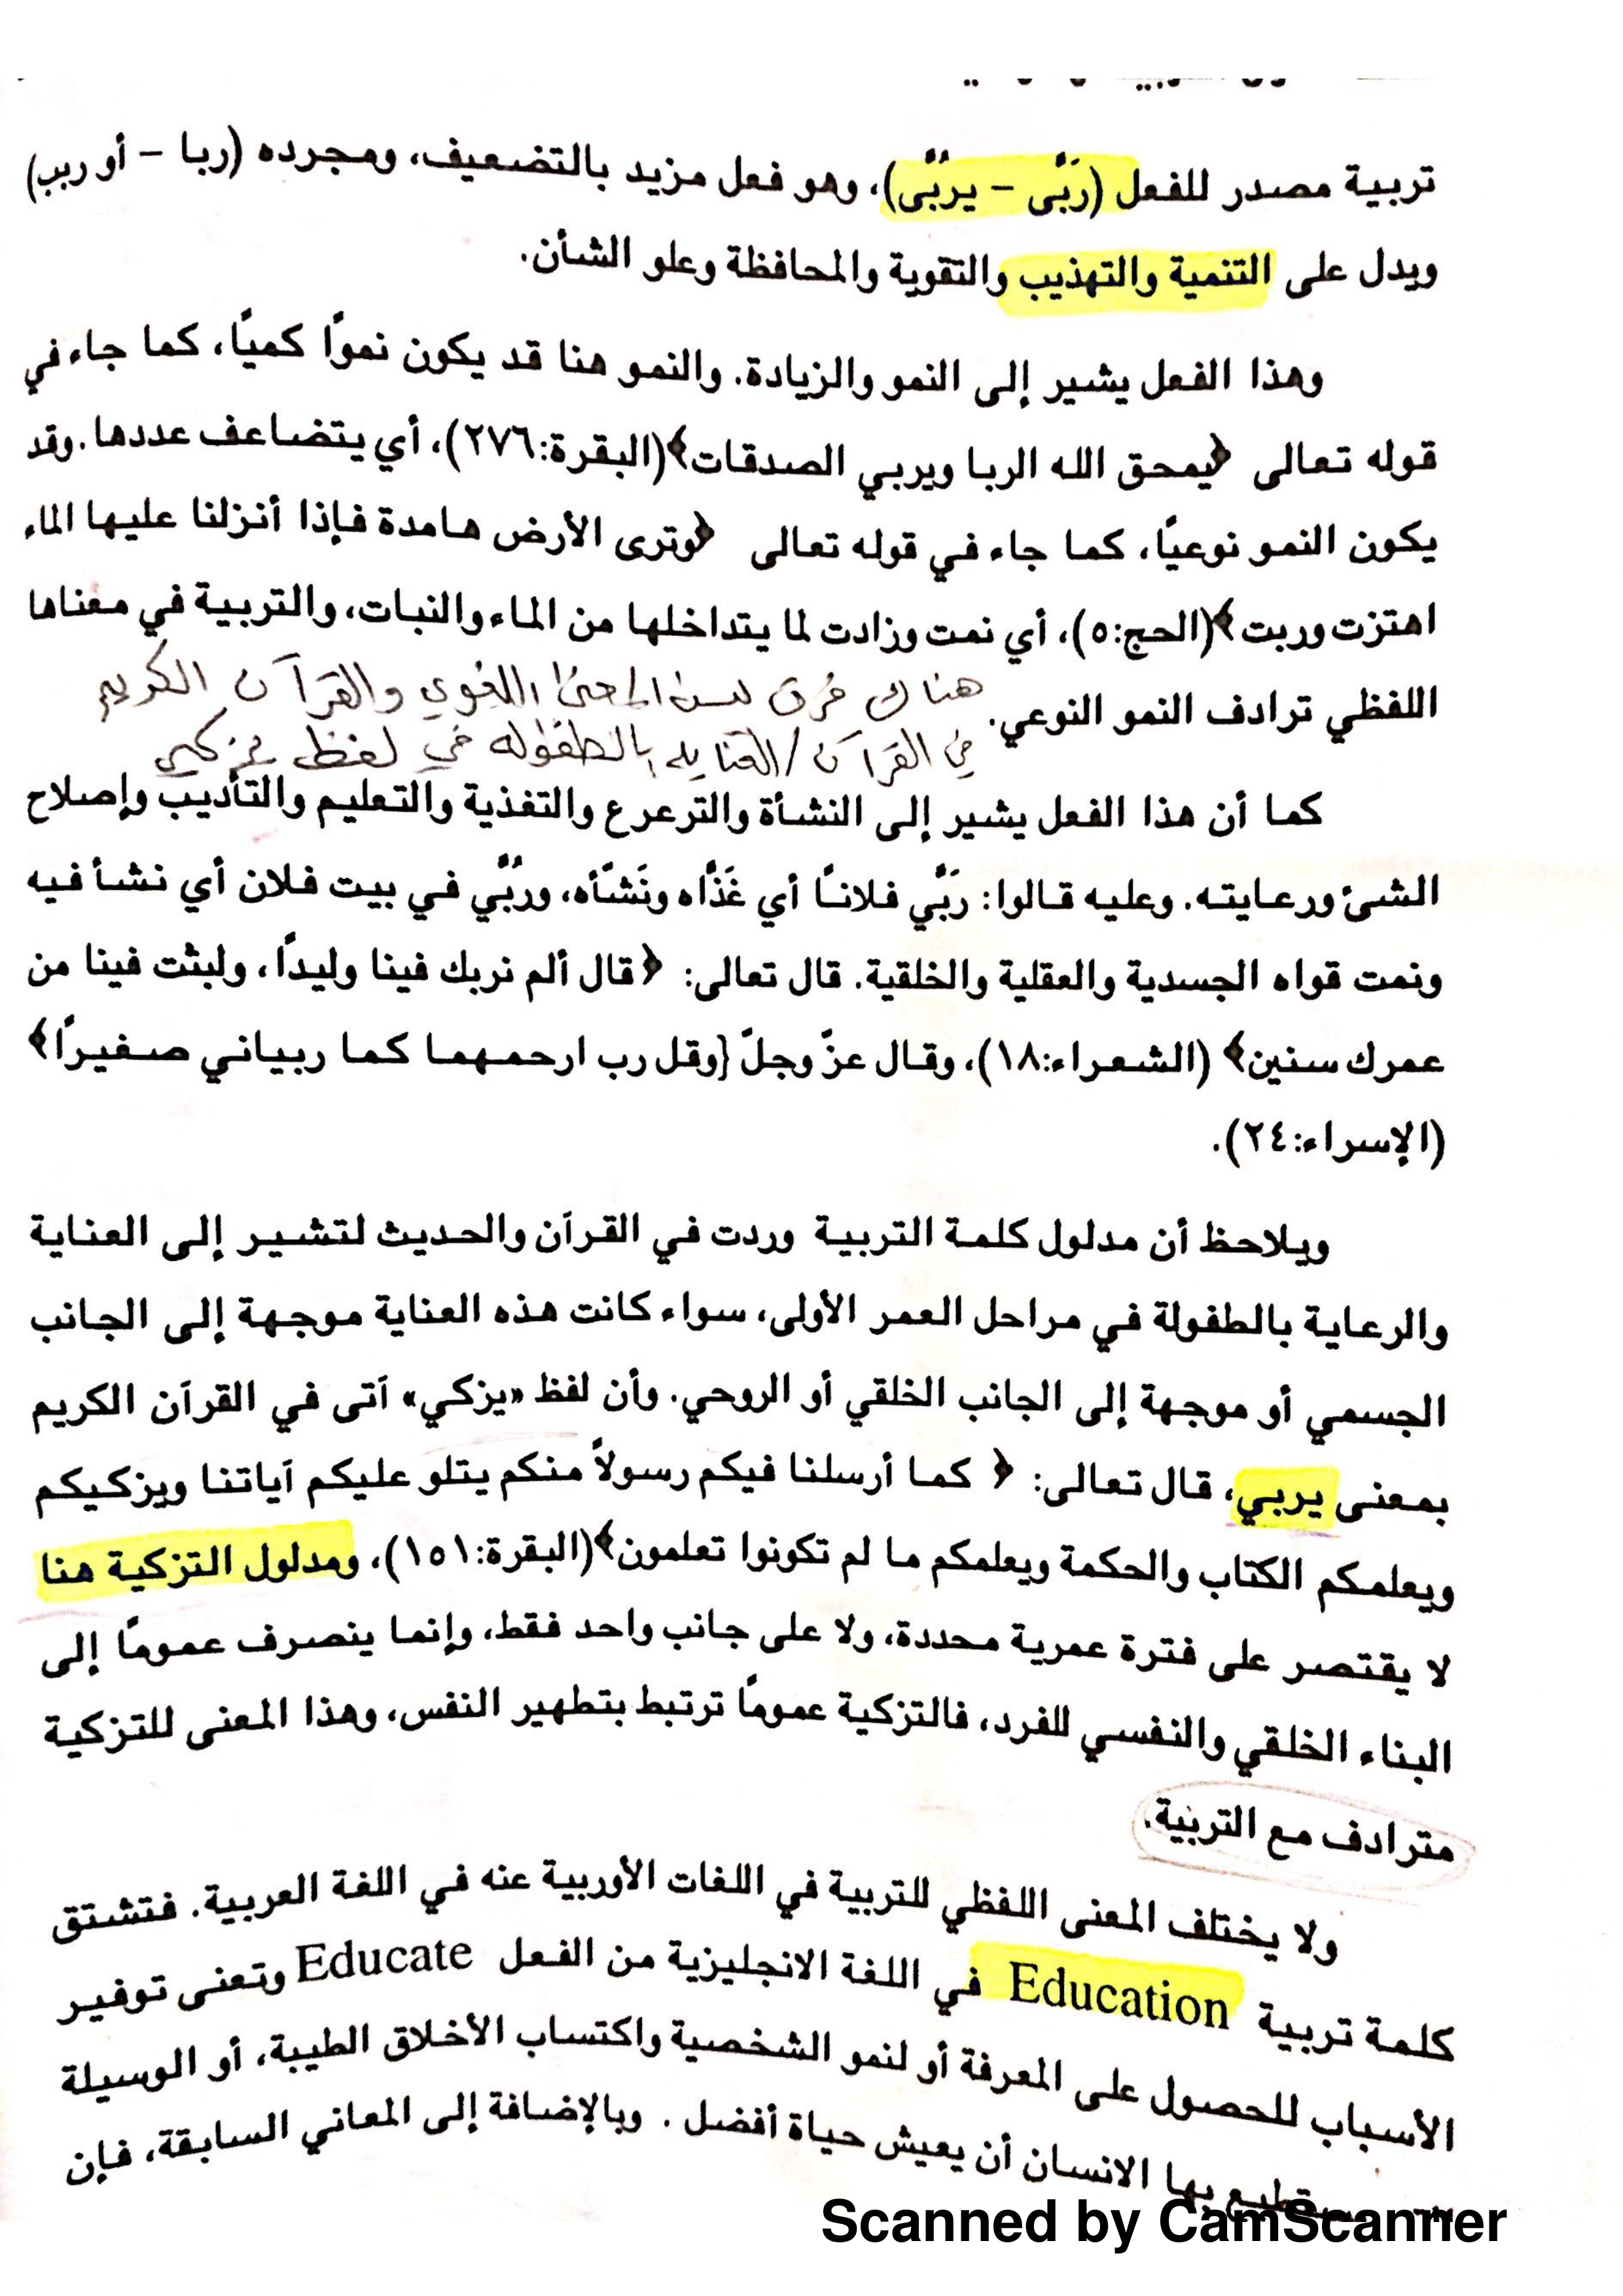 تربية مصدر للفعل (رَبَّى – يربَّى)، وهو فعل مزيد بالتضعيف، ومجرده (ربا – أو ربب)
ويدل على التنمية والتهذيب والتقوية والمحافظة وعلو الشأن.
وهذا الفعل يشير إلى النمو والزيادة. والنمو هنا قد يكون نموًا كميًا، كما جاء في
قوله تعالى ﴿يمحق الله الربا ويربي الصدقات﴾(البقرة:٢٧٦)، أي يتضاعف عددها. وقد
يكون النمو نوعيًا، كما جاء في قوله تعالى ﴿وترى الأرض هامدة فإذا أنزلنا عليها الماء
اهتزت وربت﴾(الحج:٥)، أي نمت وزادت لما يتداخلها من الماء والنبات، والتربية في معناها
اللفظي ترادف النمو النوعي.
هناك فرق بين المعنى اللغوي والقرآن الكريم
في القرآن / العناية بالطفولة في لفظ يزكي
كما أن هذا الفعل يشير إلى النشأة والترعرع والتغذية والتعليم والتأديب وإصلاح
الشئ ورعايته. وعليه قالوا: رَبَّي فلانًا أي غَذَّاه ونَشَّأه، ورُبَّي في بيت فلان أي نشأ فيه
ونمت قواه الجسدية والعقلية والخلقية. قال تعالى: ﴿قال ألم نربك فينا وليدًا، ولبثت فينا من
عمرك سنين﴾ (الشعراء:١٨)، وقال عزّ وجلّ {وقل رب ارحمهما كما ربياني صغيرًا﴾
(الإسراء:٢٤).
ويلاحظ أن مدلول كلمة التربية وردت في القرآن والحديث لتشير إلى العناية
والرعاية بالطفولة في مراحل العمر الأولى، سواء كانت هذه العناية موجهة إلى الجانب
الجسمي أو موجهة إلى الجانب الخلقي أو الروحي. وأن لفظ «يزكي» آتى في القرآن الكريم
بمعنى يربي، قال تعالى: ﴿ كما أرسلنا فيكم رسولاً منكم يتلو عليكم آياتنا ويزكيكم
ويعلمكم الكتاب والحكمة ويعلمكم ما لم تكونوا تعلمون﴾(البقرة:١٥١)، ومدلول التزكية هنا
لا يقتصر على فترة عمرية محددة، ولا على جانب واحد فقط، وإنما ينصرف عمومًا إلى
البناء الخلقي والنفسي للفرد، فالتزكية عمومًا ترتبط بتطهير النفس، وهذا المعنى للتزكية
مترادف مع التربية.
ولا يختلف المعنى اللفظي للتربية في اللغات الأوربية عنه في اللغة العربية. فتشتق
كلمة تربية Education في اللغة الانجليزية من الفعل Educate وتعنى توفير
الأسباب للحصول على المعرفة أو لنمو الشخصية واكتساب الأخلاق الطيبة، أو الوسيلة
بها الانسان أن يعيش حياة أفضل . وبالإضافة إلى المعاني السابقة، فإن
Scanned by CamScanner